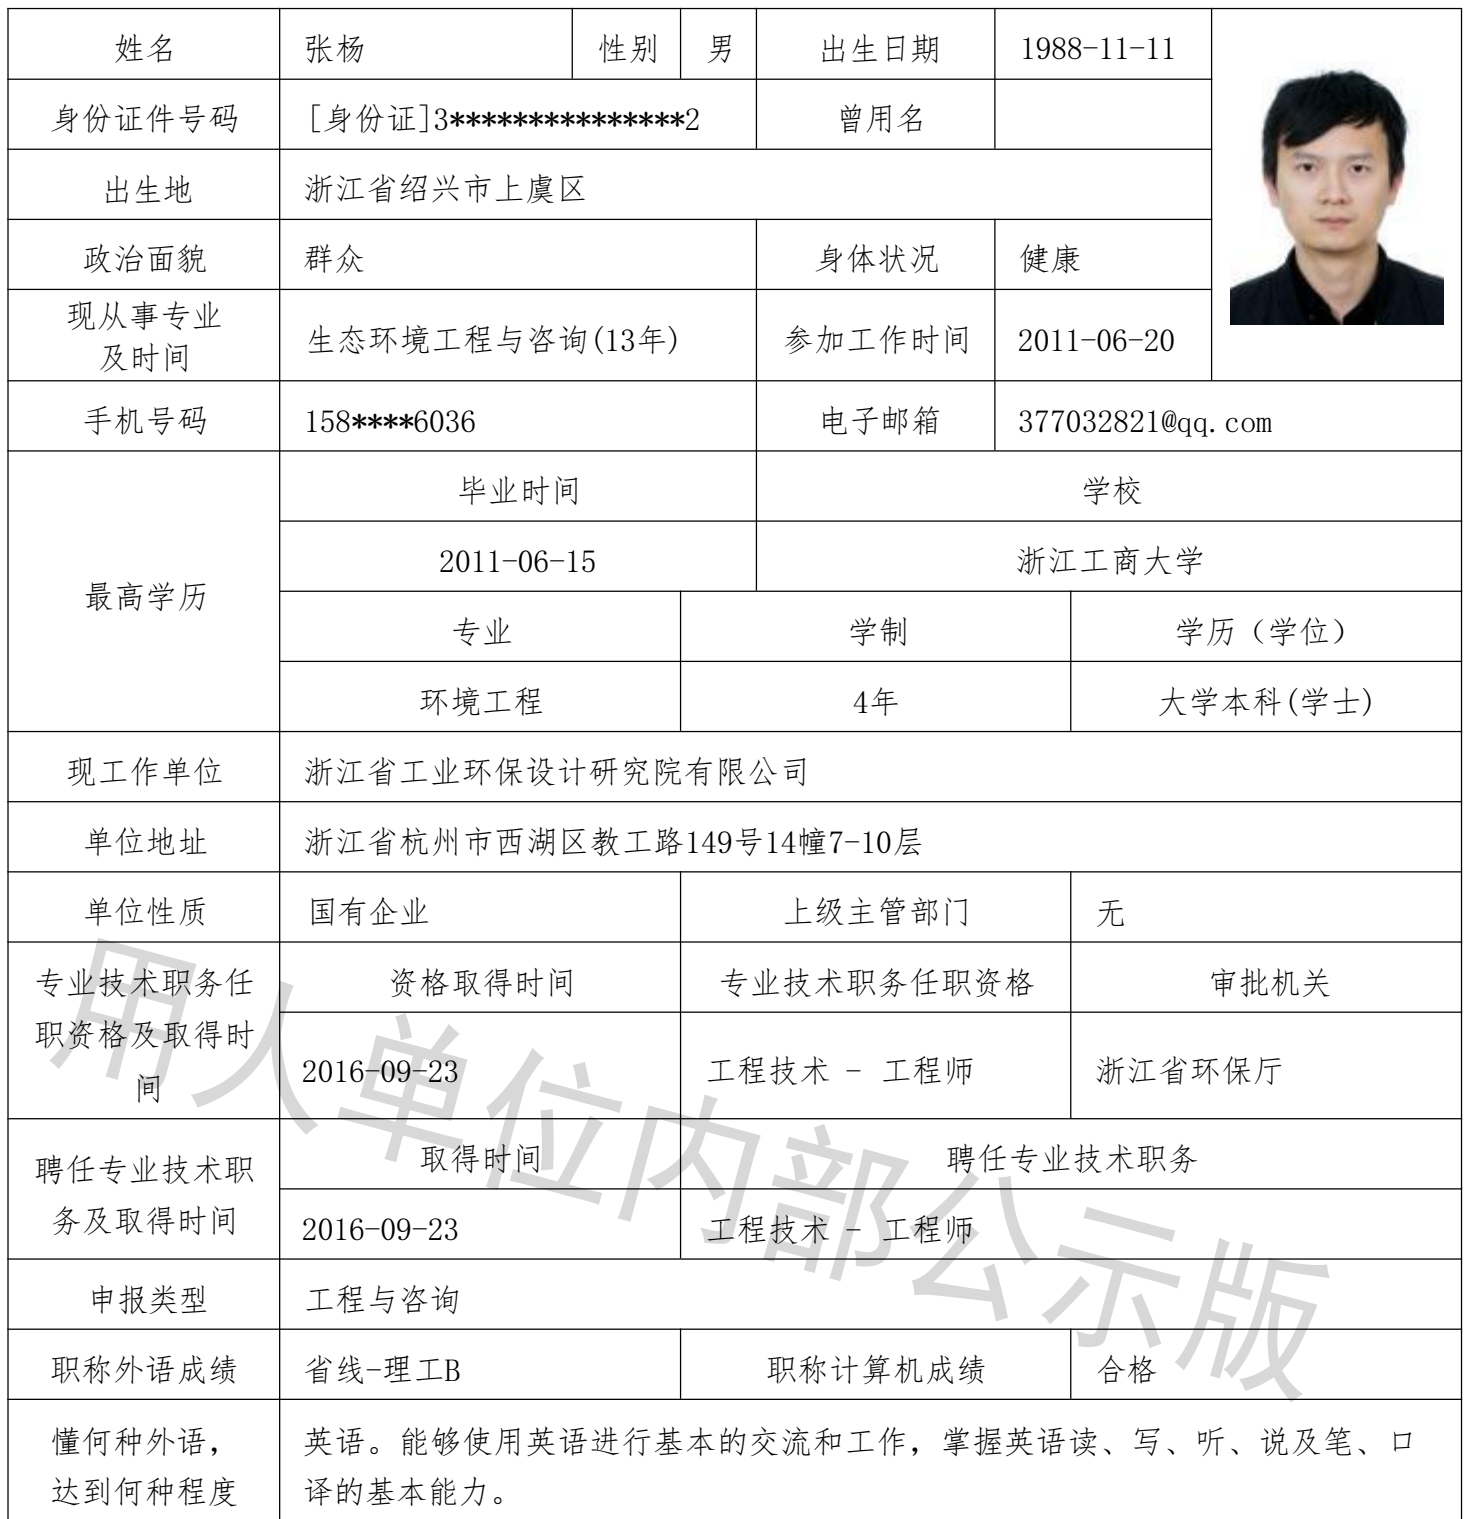 姓名 张杨 性别 男 出生日期 1988-11-11
身份证件号码 [身份证]3***************2 曾用名
出生地 浙江省绍兴市上虞区
政治面貌 群众 身体状况 健康
现从事专业
及时间 生态环境工程与咨询(13年) 参加工作时间 2011-06-20
手机号码 158****6036 电子邮箱 377032821@qq.com
最高学历
毕业时间 学校
2011-06-15 浙江工商大学
专业 学制 学历（学位）
环境工程 4年 大学本科(学士)
现工作单位 浙江省工业环保设计研究院有限公司
单位地址 浙江省杭州市西湖区教工路149号14幢7-10层
单位性质 国有企业 上级主管部门 无
专业技术职务任
职资格及取得时
间
资格取得时间 专业技术职务任职资格 审批机关
2016-09-23 工程技术 - 工程师 浙江省环保厅
聘任专业技术职
务及取得时间
取得时间 聘任专业技术职务
2016-09-23 工程技术 - 工程师
申报类型 工程与咨询
职称外语成绩 省线-理工B 职称计算机成绩 合格
懂何种外语，
达到何种程度
英语。能够使用英语进行基本的交流和工作，掌握英语读、写、听、说及笔、口
译的基本能力。
用人单位内部公示版